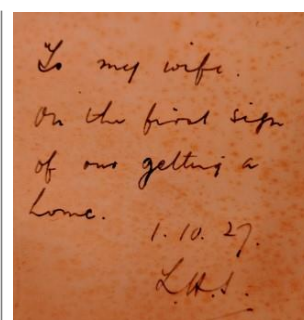 To my wife.
On the first sign
of our getting a
home.
1.10.27.
L.H.S.